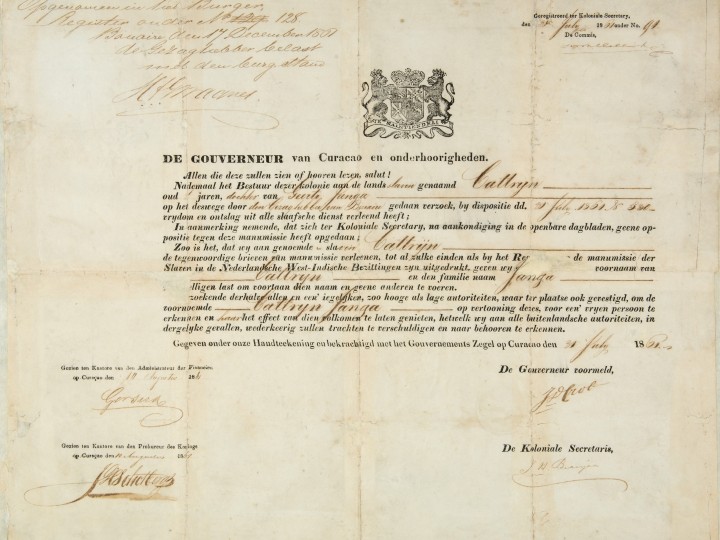 Opgenomen in het Burger
Register onder No 128
Bonaire, den 17 December 1861
de Gezaghebber belast
met den burgstand
Geregistreerd ter Koloniale Secretary,
den July 18 onder No. 91
De Commis,
JE MAINTIENDRAI
DE GOUVERNEUR van Curacao en onderhoorigheden.
Allen die deze zullen zien of hooren lezen, salut!
Nademaal het Bestuur dezer kolonie aan de lands slavin genaamd Cattryn
oud jaren, dochter van Janga
op het deswege door den Gezaghebber van Bonaire gedaan verzoek, by dispositie dd. 21 July 1861 No
vrydom en ontslag uit alle slaafsche dienst verleend heeft;
In aanmerking nemende, dat zich ter Koloniale Secretary, na aankondiging in de openbare dagbladen, geene op-
positie tegen deze manumissie heeft opgedaan;
Zoo is het, dat wy aan genoemde slavin Cattryn
de tegenwoordige brieven van manumissie verleenen, tot al zulke einden als by het Re de manumissie der
Slaven in de Nederlandsche West-Indische Bezittingen zyn uitgedrukt, geven wy voornaam van
Cattryn en den familie naam Janga
elligen last om voortaan dien naam en geene anderen te voeren.
zoekende derhalve allen en een' iegelijken, zoo hooge als lage autoriteiten, waar ter plaatse ook gevestigd, om de
voornoemde Cattryn Janga op vertooning dezes, voor een' vryen persoon te
erkennen en haar het effect van dien volkomen te laten genieten, hetwelk wy aan alle buitenlandsche autoriteiten, in
dergelyke gevallen, wederkeerig zullen trachten te verschuldigen en naar behooren te erkennen.
Gegeven onder onze Handteekening en bekrachtigd met het Gouvernements Zegel op Curacao den 21 July 1861
Gezien ten Kantore van den Administrateur der Finantien
op Curaçao den 18
De Gouverneur voormeld,
Gezien ten Kantore van den Prokureur des Konings
op Curaçao den 18
De Koloniale Secretaris,